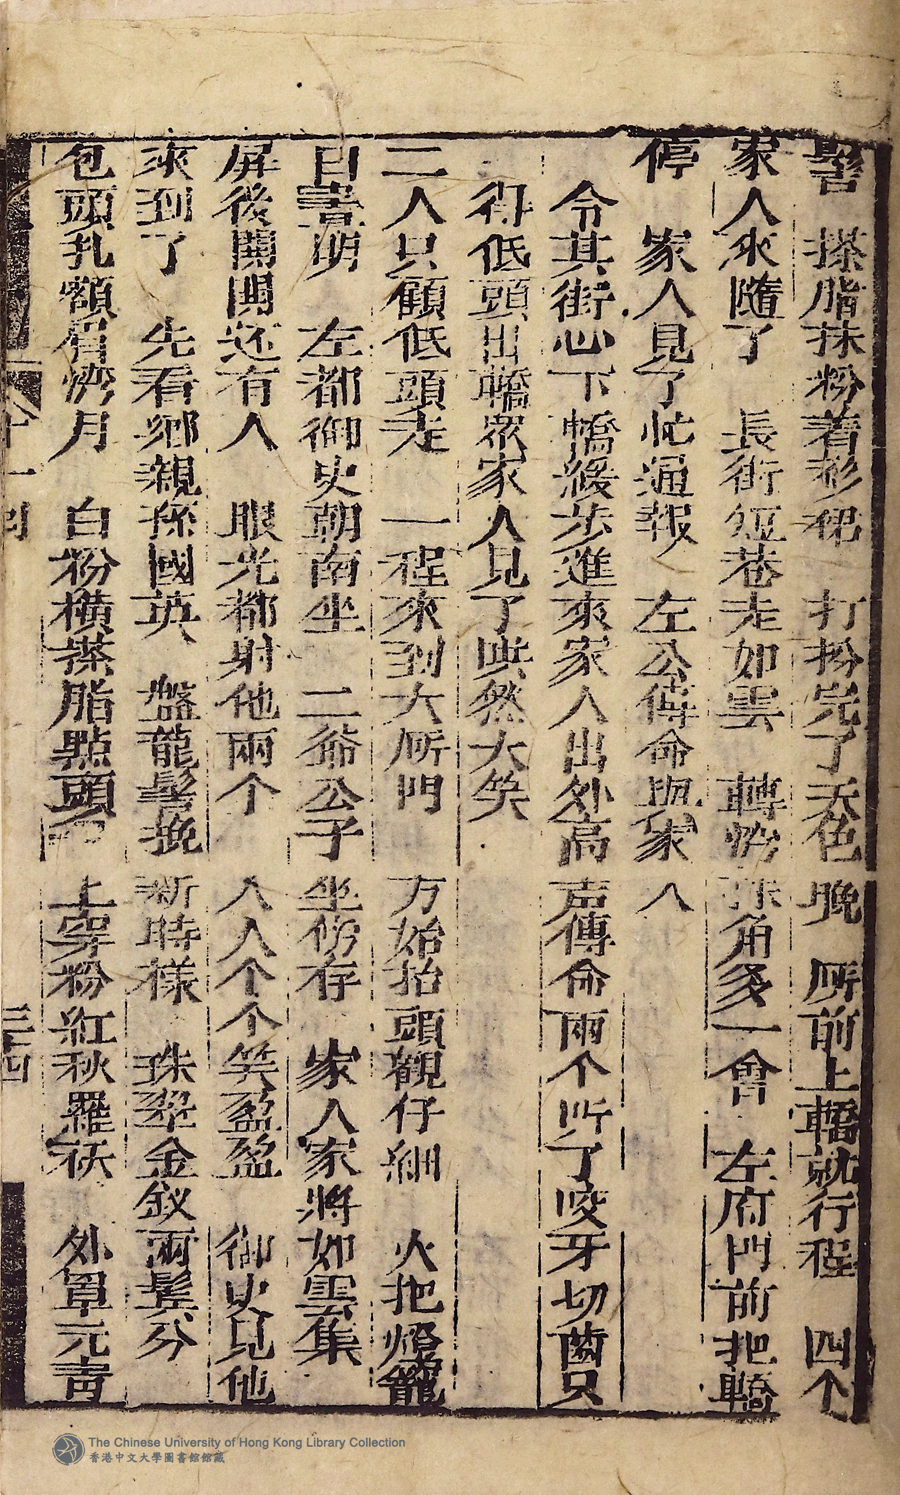 髻　搽脂抹粉着衫裙　打扮完了天色晚　厛前上轎就行程　四个
家人來隨了　長街短巷走如雲　轉灣抹角多一會　左府門前把轎
停　家人見了忙通報　左公傳命與家人
令其街心下轎緩步進來家人出外高声傳命兩个听了咬牙切齒只
得低頭出轎眾家人見了哄然大笑
二人只顧低頭走　一程來到大厛門　方始抬頭觀仔細　火把燈籠
白晝明　左都御史朝南坐　二爺公子坐傍存　家人家將如雲集
屏後關開还有人　眼光都射他兩个　人人个个笑盈盈　御史見他
來到了　先看鄉親孫國英　盤龍髻挽新時樣　珠翠金釵兩鬢分
包頭扎額眉灣月　白粉橫搽脂點頭　上穿粉紅秋羅袄　外罩元青
十一回
三四
The Chinese University of Hong Kong Library Collection
香港中文大學圖書館館藏